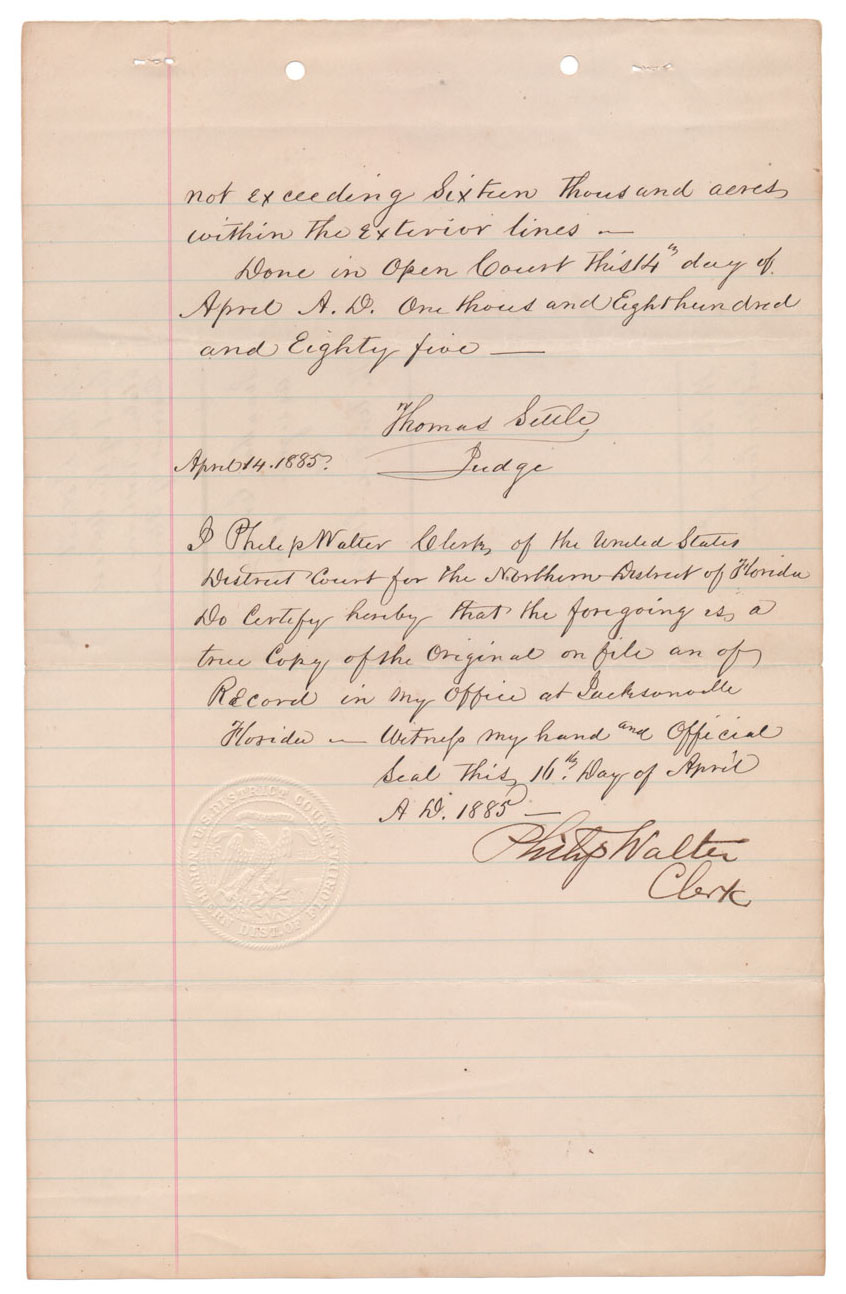 not exceeding Sixteen thousand acres
within the exterior lines —
Done in Open Court this 14th day of
April A. D. One thousand Eight hundred
and Eighty five —
Thomas Settle
April 14. 1885.
Judge
I Philip Walter Clerk of the United States
District Court for the Northern District of Florida
Do Certify hereby that the foregoing is a
true Copy of the Original on file an of
Record in my Office at Jacksonville
Florida — Witness my hand and Official
Seal this 16th. Day of April
A D. 1885 —
Philip Walter
Clerk
U.S. DISTRICT COURT
NORTHERN DIST. OF FLORIDA